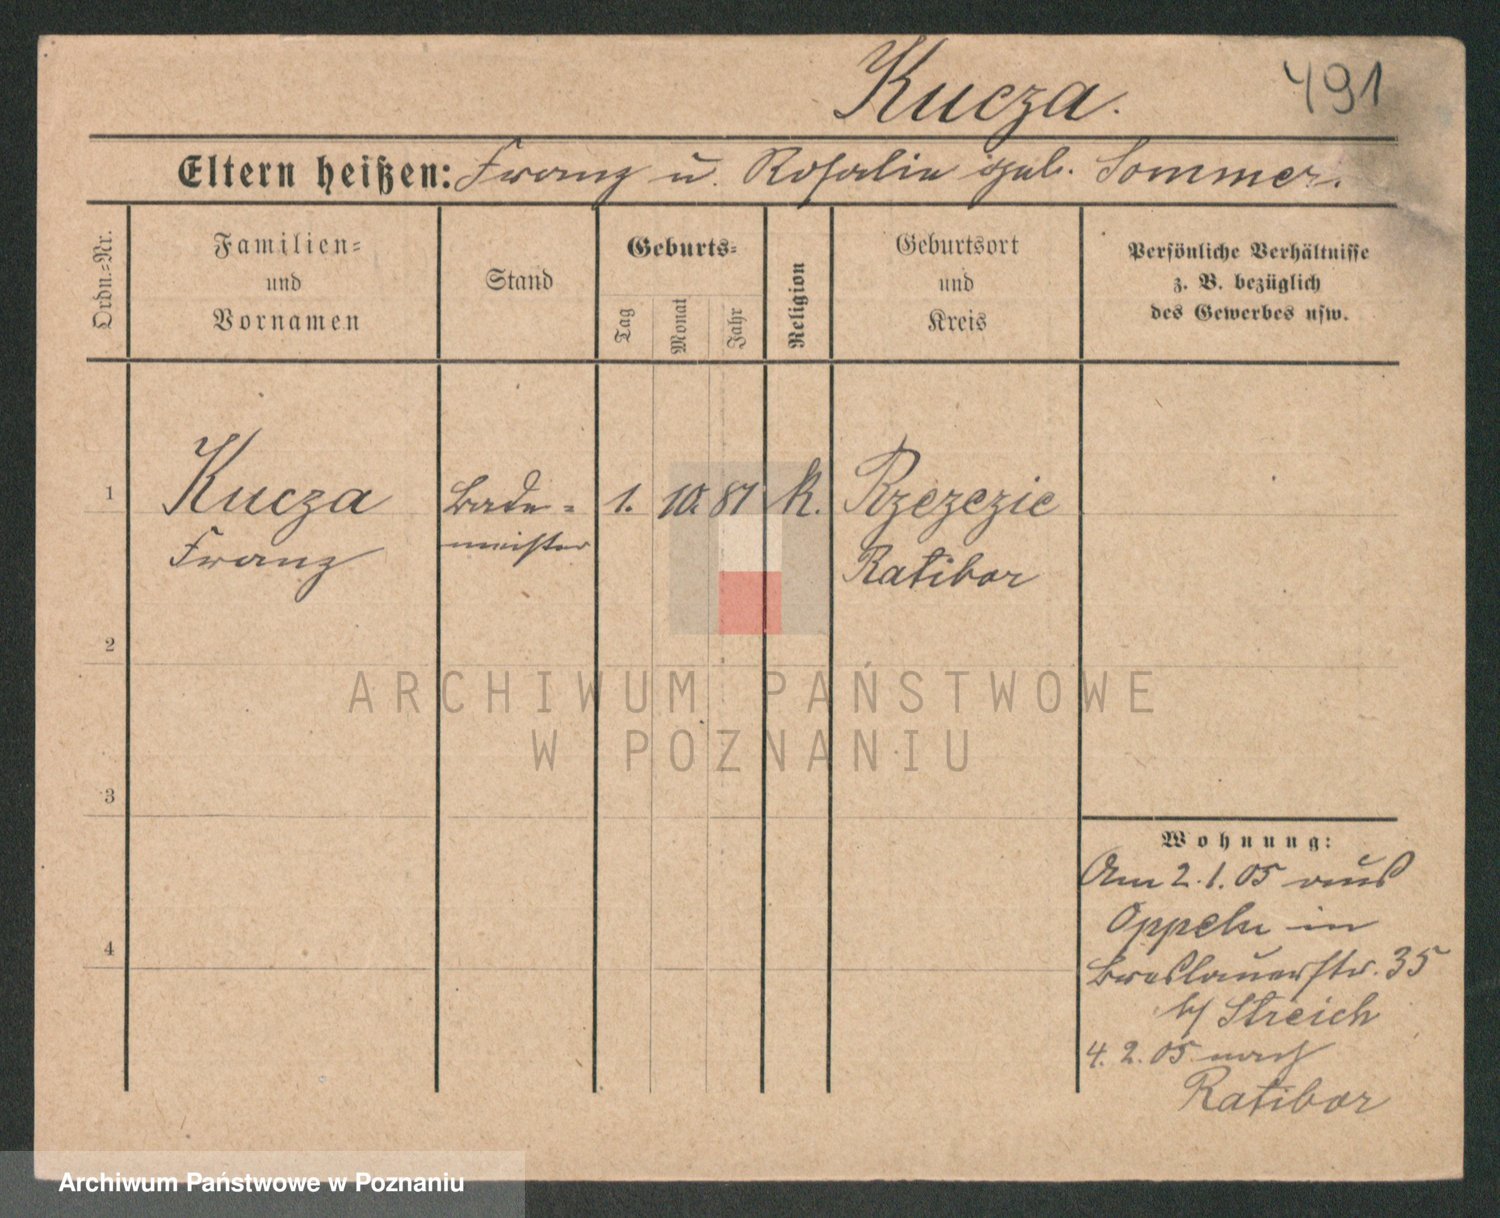 Kucza.
491
Eltern heißen: Franz u. Rosalie geb. Sommer.
Ordn.=Nr.
Familien=
und
Vornamen
Stand
Geburts=
Tag
Monat
Jahr
Religion
Geburtsort
und
Kreis
Persönliche Verhältnisse
z. B. bezüglich
des Gewerbes usw.
1
Kucza
Franz
Bade=
meister
1. 10. 87
k.
Rzezezie
Ratibor
2
3
4
Wohnung:
Am 2.1.05 aus
Oppeln in
Breslauerstr. 35
b/ Streich
4.2.05 nach
Ratibor
ARCHIWUM PAŃSTWOWE
W POZNANIU
Archiwum Państwowe w Poznaniu